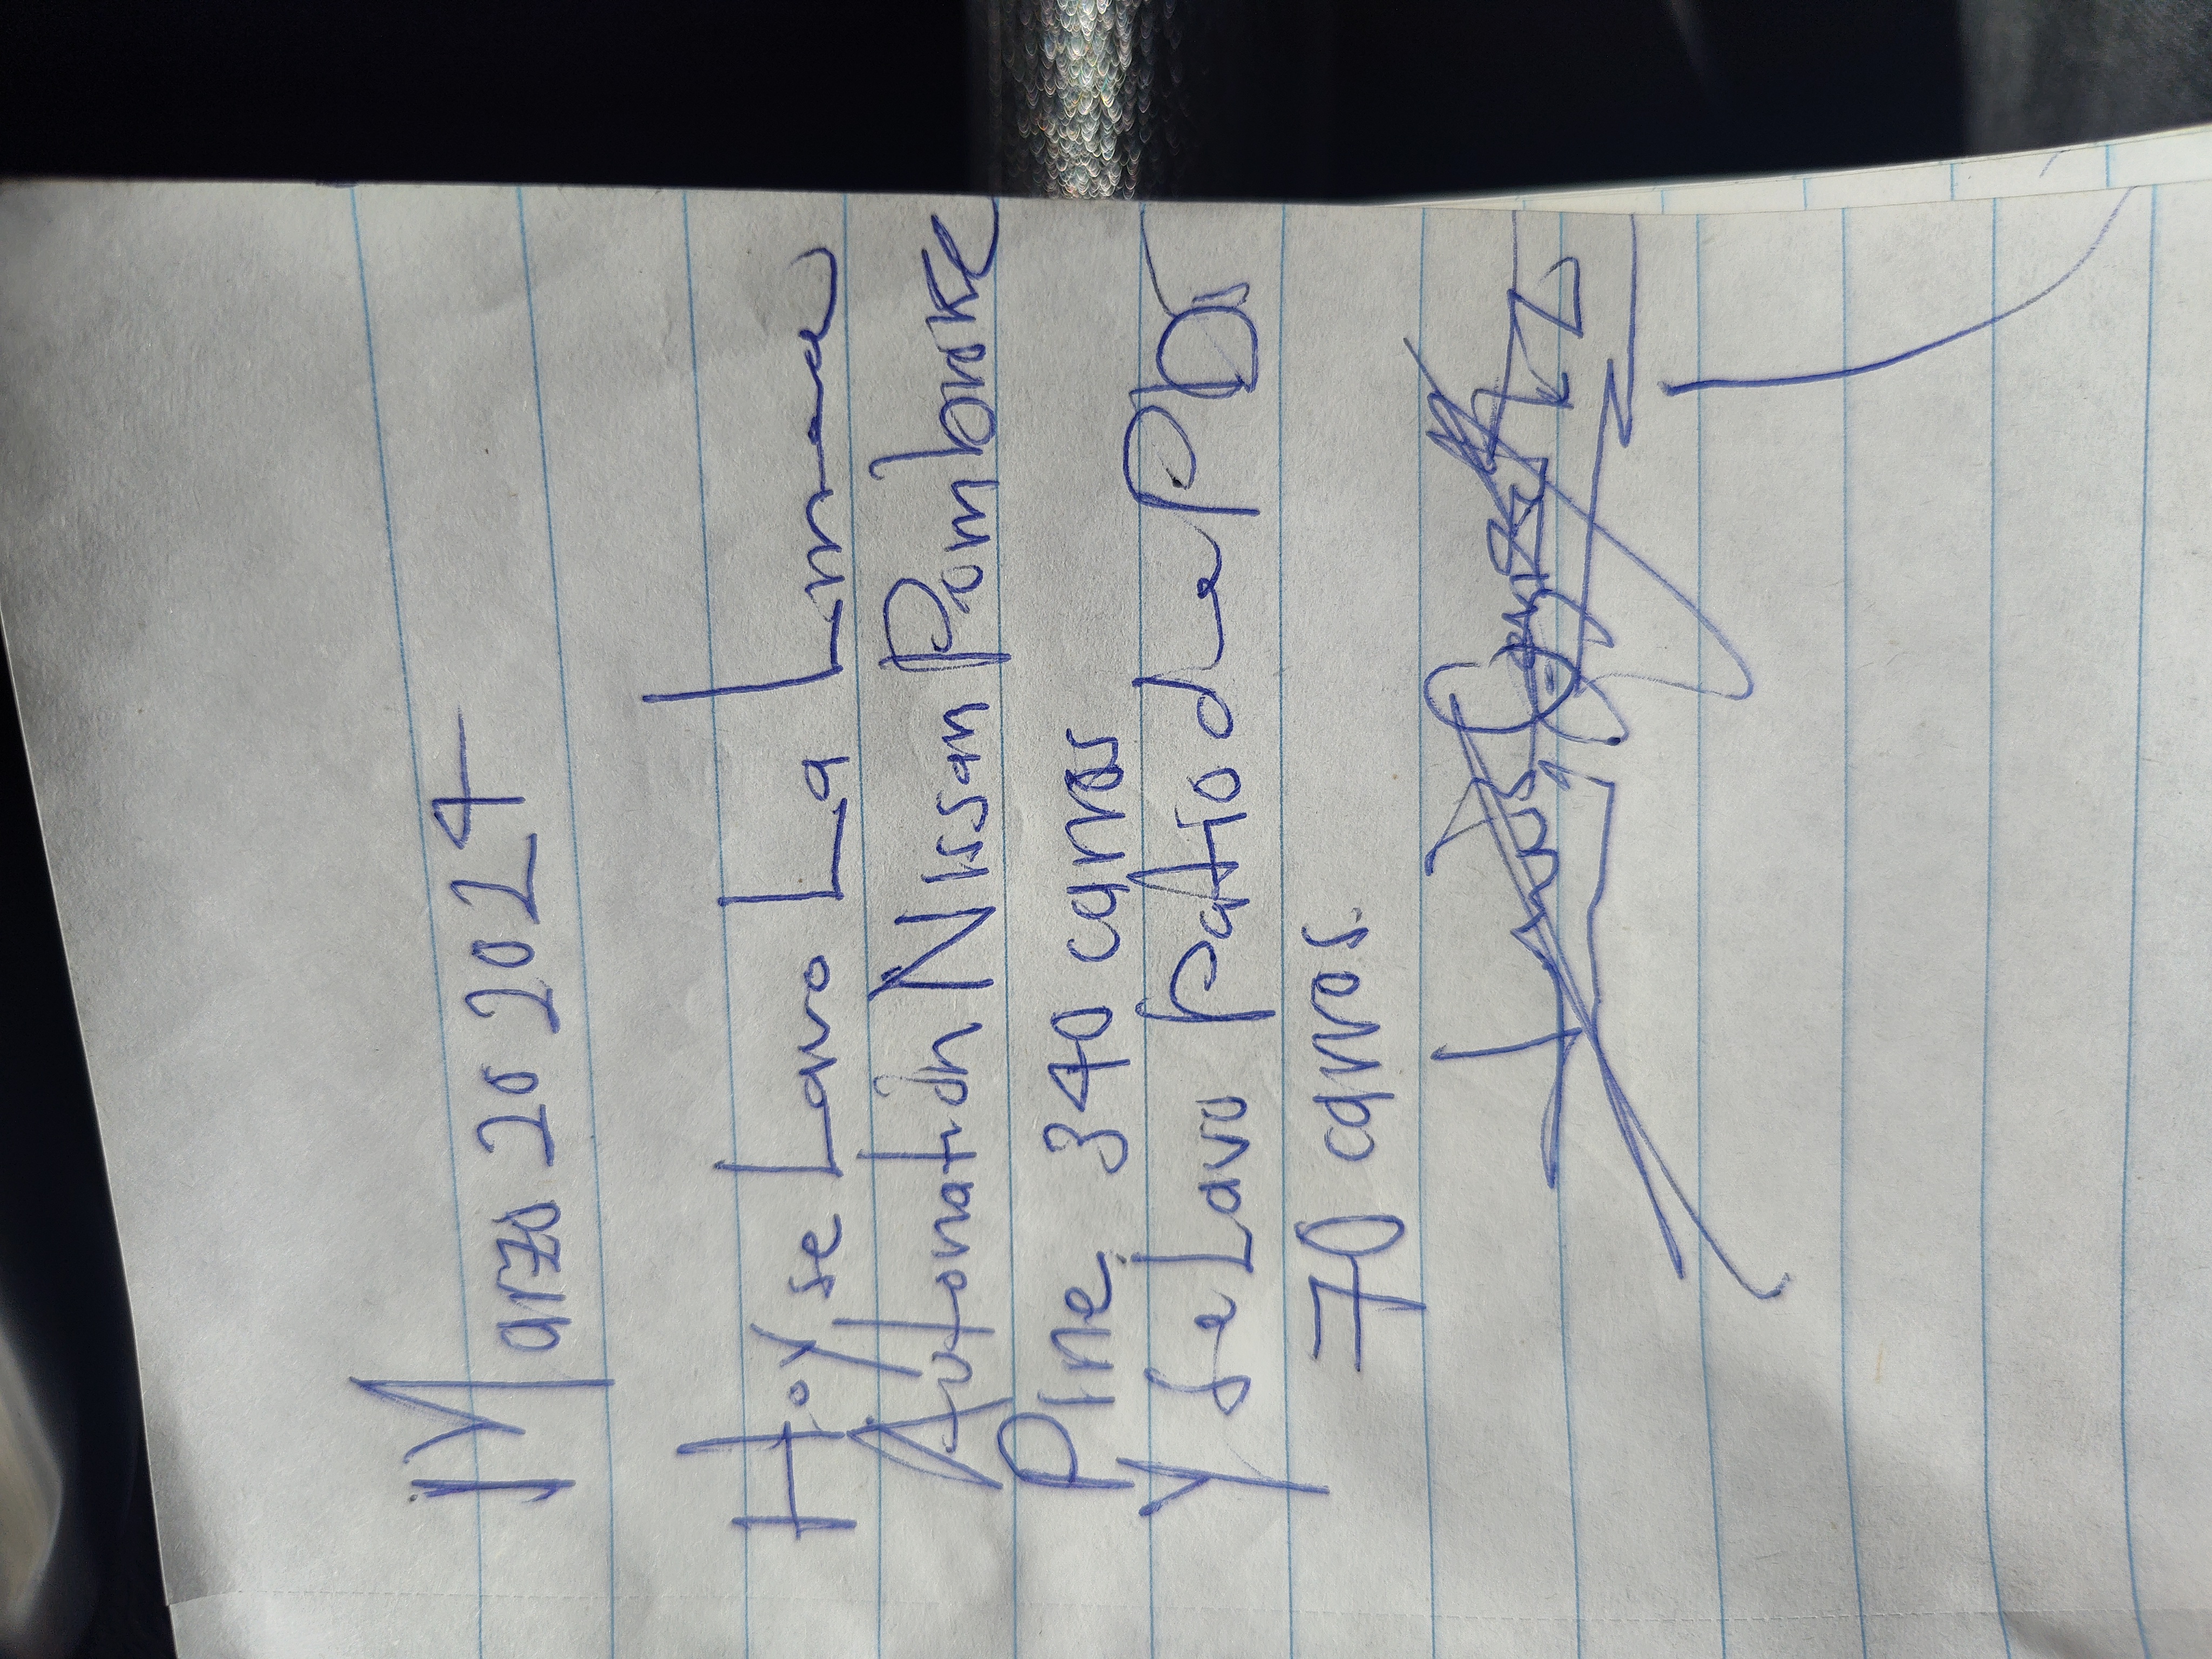 Marzo 20 2024
Hoy se Lavo La Linea
Autonation Nissan Pembroke
Pine 340 carros
y se Lavo patio de PD
70 carros.